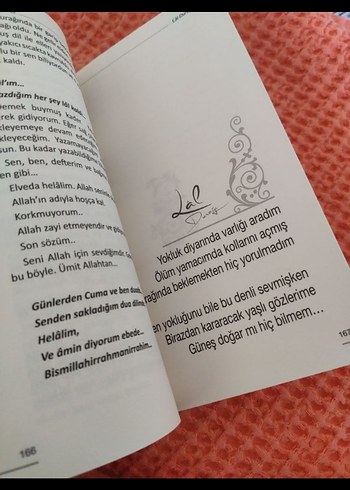 urağında bir geç
ağı oldu. Ne
uş dil ile elleri
yakıcı sıcakta
lu bir sen biliyor
kaldı.
al'ım...
azdığım her şey lâl kaldı
emek buymuş kader
erek gidiyorum. Eğer sağ
kleyemeye devam eder
kleyeceğim. Yazamayaca
sun. Bu kadar yazabildiğim
Sen, ben, defterim ve bağ
en gibi...
Elveda helâlim. Allah senin
Allah'ın adıyla hoşça kal
Korkmuyorum..
Allah zayi etmeyendir ve
Son sözüm...
Seni Allah için sevdiğimde
bu böyle. Ümit Allahtan...
Günlerden Cuma ve ben duam
Senden sakladığım dua dilim
Helâlim,
Ve âmin diyorum ebede...
Bismillahirrahmanirrahim...
166
Lâl
Yokluk diyarında varlığı aradım
Ölüm yamacımda kollarını açmış
rağında beklemekten hiç yorulmadım
en yokluğunu bile bu denli sevmişken
Birazdan kararacak yaşlı gözlerime
Güneş doğar mı hiç bilmem...
167